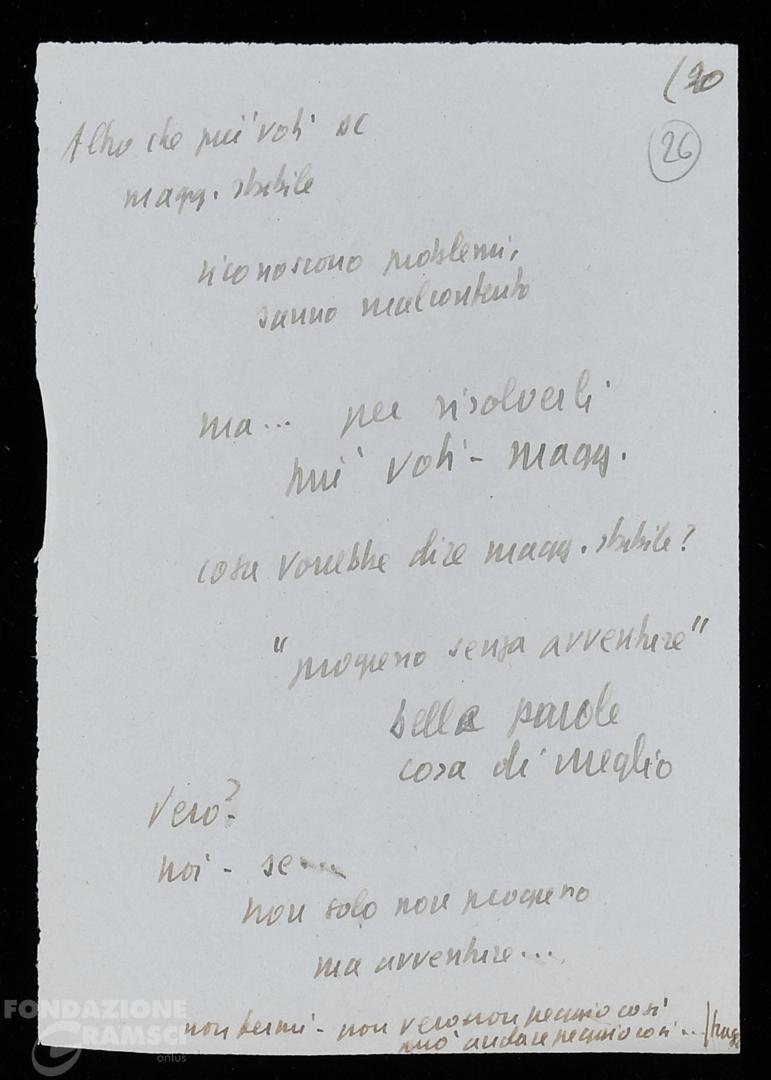 (20
26
Altro che più voti DC
magg. stabile
riconoscono problemi,
sanno malcontento
ma... per risolverli
più voti - magg.
cosa vorrebbe dire magg. stabile?
"progresso senza avventure"
belle parole
cosa di meglio
Vero?
noi - se...
non solo non progresso
ma avventure...
non fermi - non vero non peggio così
può andare peggio così...
FONDAZIONE
GRAMSCI
onlus